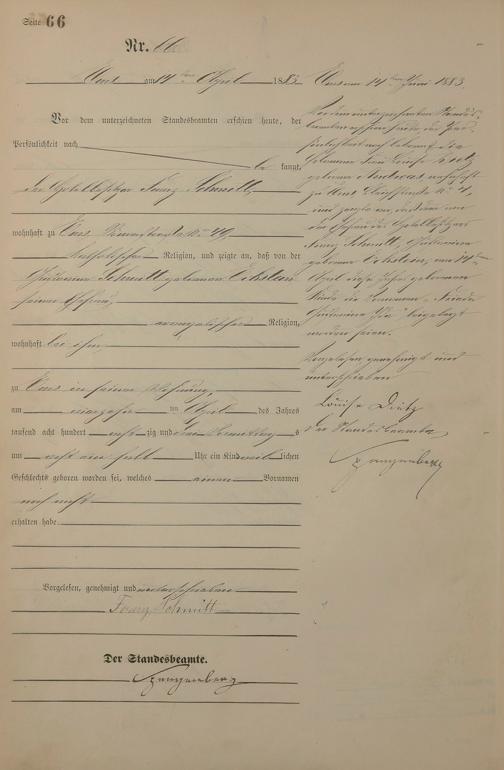 Seite 66
Nr. 66
Ems am 14ten April 1883
Vor dem unterzeichneten Standesbeamten erschien heute, der
Persönlichkeit nach
be kannt,
der Hotelbesitzer Franz Schmitt,
wohnhaft zu Ems No 49,
katholischer Religion, und zeigte an, daß von der
Schmitt geborenen
seiner Ehefrau,
evangelischer Religion,
wohnhaft bei ihm
zu Ems in seiner Wohnung,
am vierzehn ten April des Jahres
tausend acht hundert acht zig und drei Vormittags
um acht ein halb Uhr ein Kind weib lichen
Geschlechts geboren worden sei, welches einen Vornamen
noch nicht
erhalten habe.
Vorgelesen, genehmigt und unterschrieben
Franz Schmitt
Der Standesbeamte.
Spangenberg
Ems am 14ten Juni 1883.
Vor dem unterzeichneten Standes-
beamten erschien heute der Per-
sönlichkeit nach bekannt die
geborene wohnhaft
zu Ems No 4,
und zeigte an, daß dem von
der Ehefrau des Hotelbesitzers
Franz Schmitt,
geborenen am 14ten
April dieses Jahres geborenen
Kinde die Vornamen
beigelegt
worden seien.
Vorgelesen genehmigt und
unterschrieben
Louise Dietz
Der Standesbeamte
Spangenberg